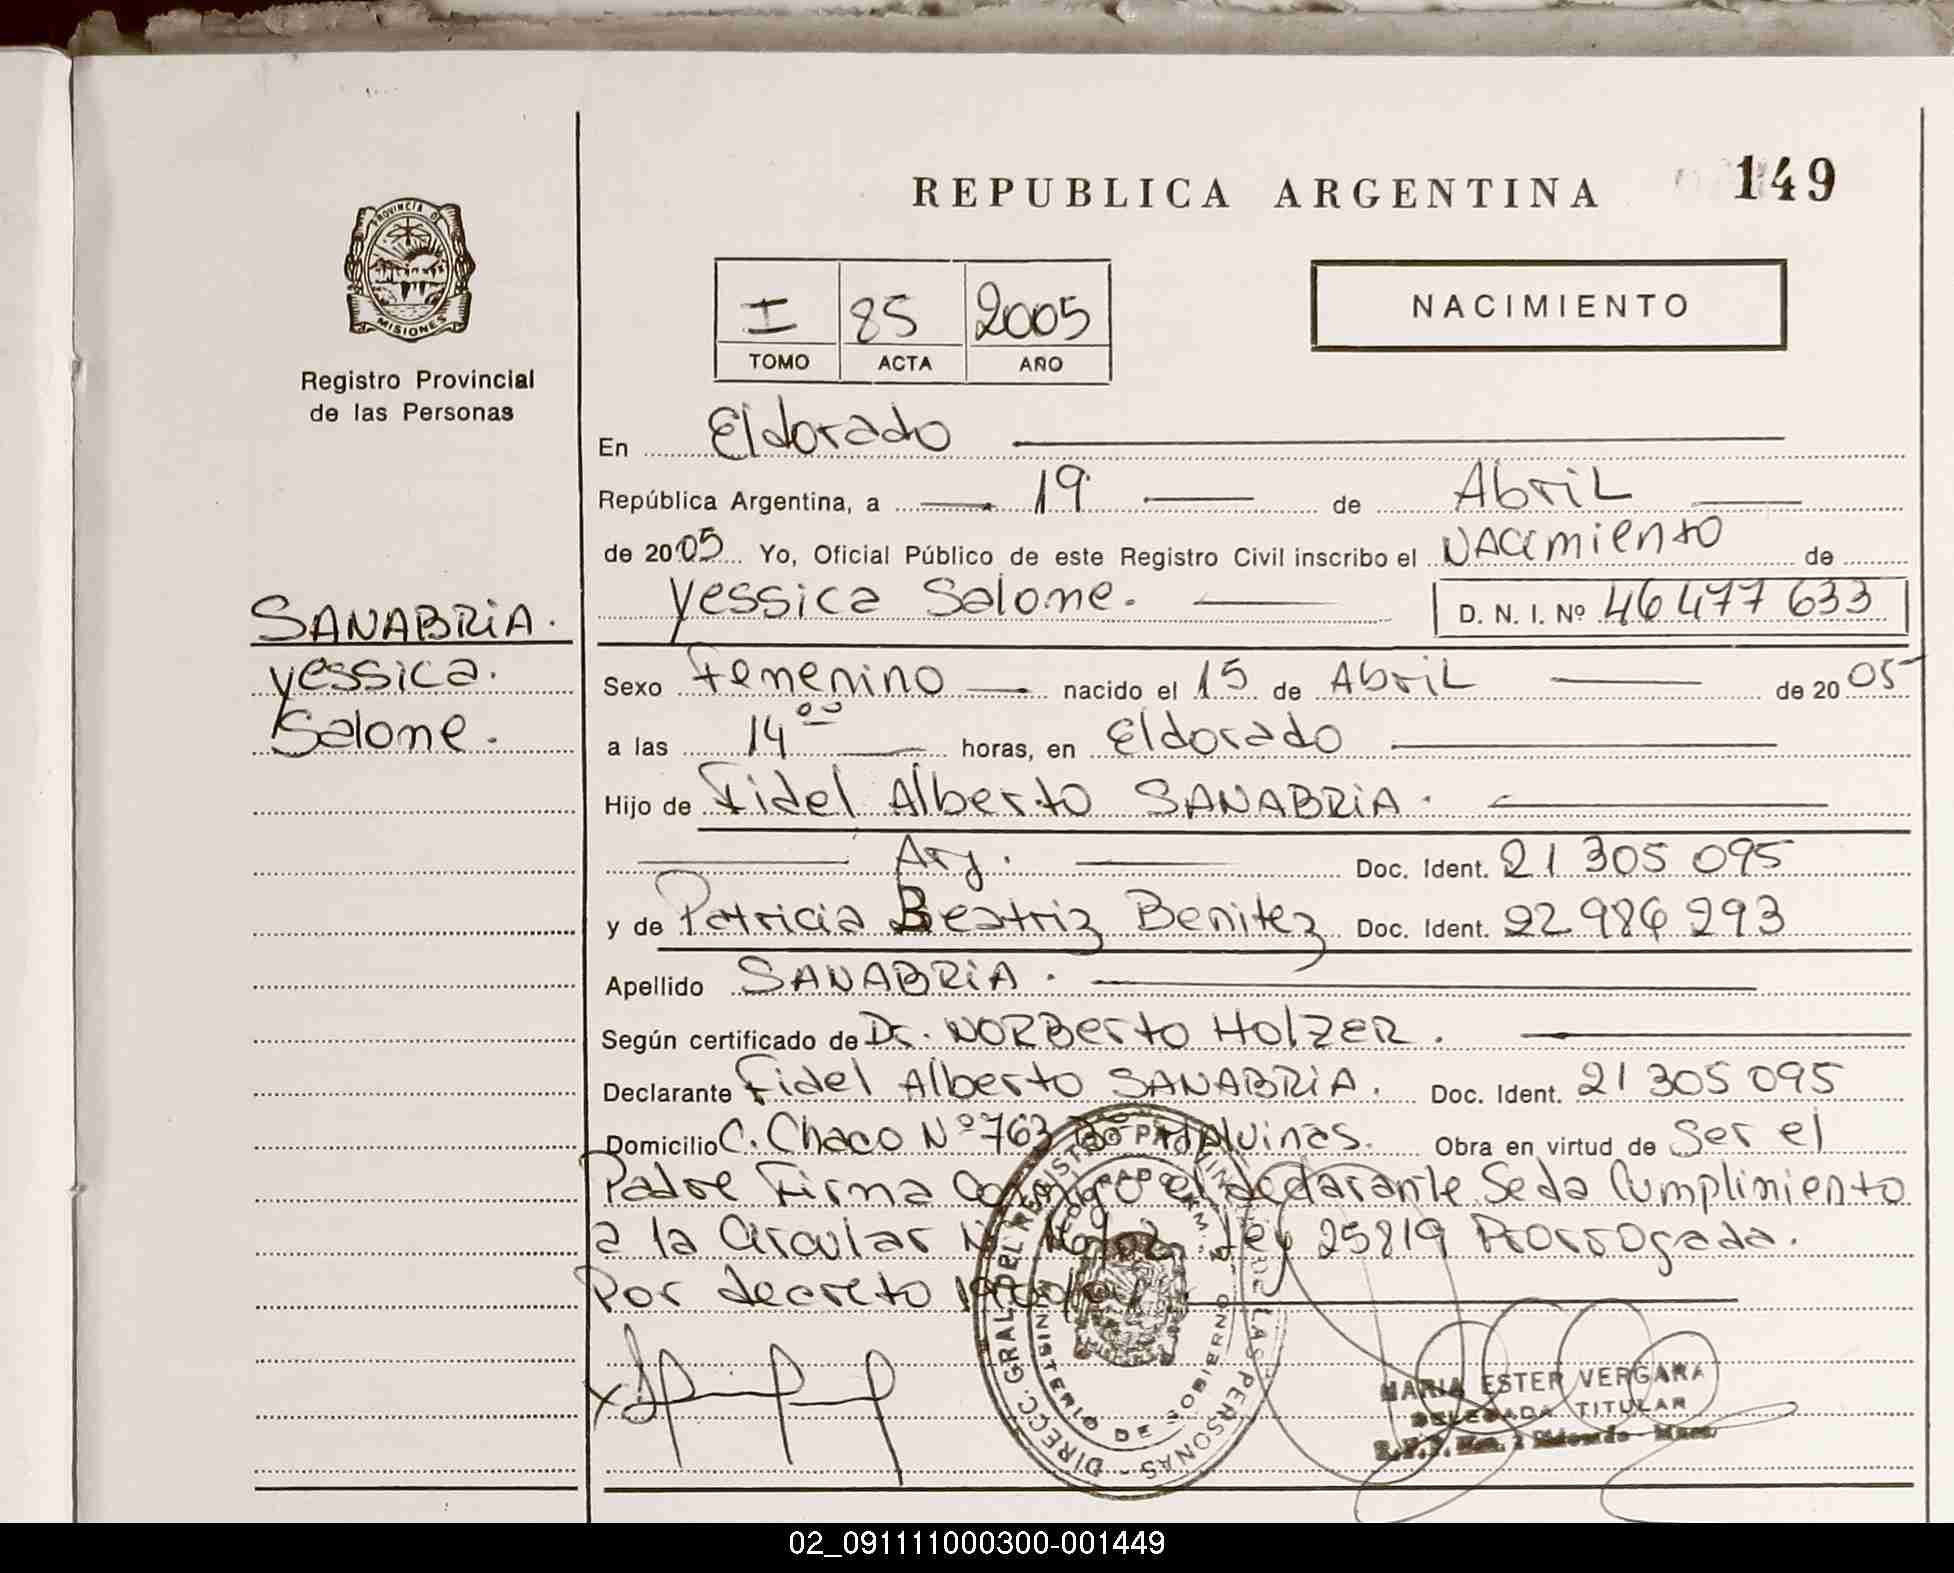 REPUBLICA ARGENTINA 149
PROVINCIA DE
MISIONES
Registro Provincial
de las Personas
I 85 2005
TOMO ACTA AÑO
NACIMIENTO
En Eldorado
República Argentina, a 19 de Abril
de 2005 Yo, Oficial Público de este Registro Civil inscribo el Nacimiento de
Yessica Salome. D. N. I. Nº 46 477 633
SANABRIA.
Yessica.
Salome.
Sexo Femenino nacido el 15 de Abril de 2005
a las 14 00 horas, en Eldorado
Hijo de Fidel Alberto SANABRIA.
Arg. Doc. Ident. 21 305 095
y de Patricia Beatriz Benitez Doc. Ident. 22 986 293
Apellido SANABRIA.
Según certificado de Dr. NORBerto HOlZER.
Declarante Fidel Alberto SANABRIA. Doc. Ident. 21 305 095
Domicilio C. Chaco Nº 763 Bº Malvinas. Obra en virtud de Ser el
Padre Firma Conmigo el declarante. Se da Cumplimiento
a la Circular Ley 25819 Prorrogada.
Por decreto
DIRECC. GRAL. DEL REGISTRO PROVINCIAL DE LAS PERSONAS
MINISTERIO DE GOBIERNO
MARIA ESTER VERGARA
DELEGADA TITULAR
02_091111000300-001449